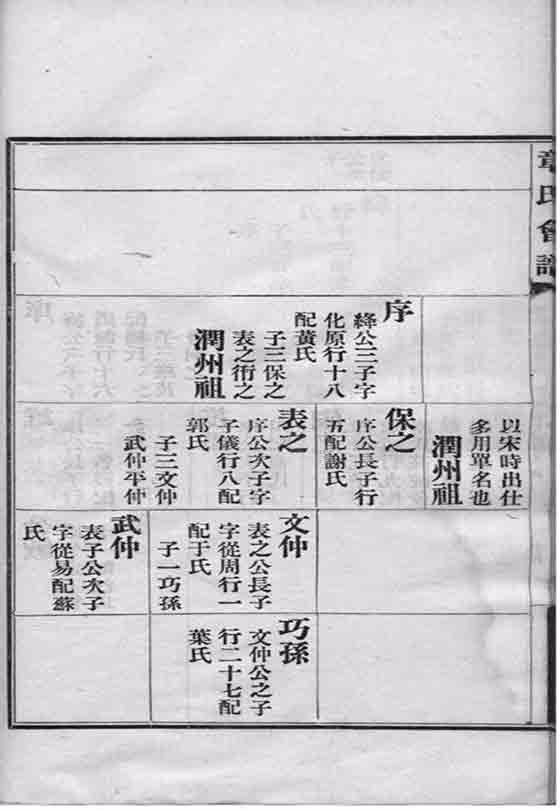 章氏會譜
序
絳公三子字
化原行十八
配黃氏
子三保之
表之衎之
潤州祖
以宋時出仕
多用單名也
潤州祖
保之
序公長子行
五配謝氏
表之
序公次子字
子儀行八配
郭氏
子三文仲
武仲平仲
文仲
表之公長子
字從周行一
配于氏
子一巧孫
武仲
表子公次子
字從易配蘇
氏
巧孫
文仲公之子
行二十七配
葉氏